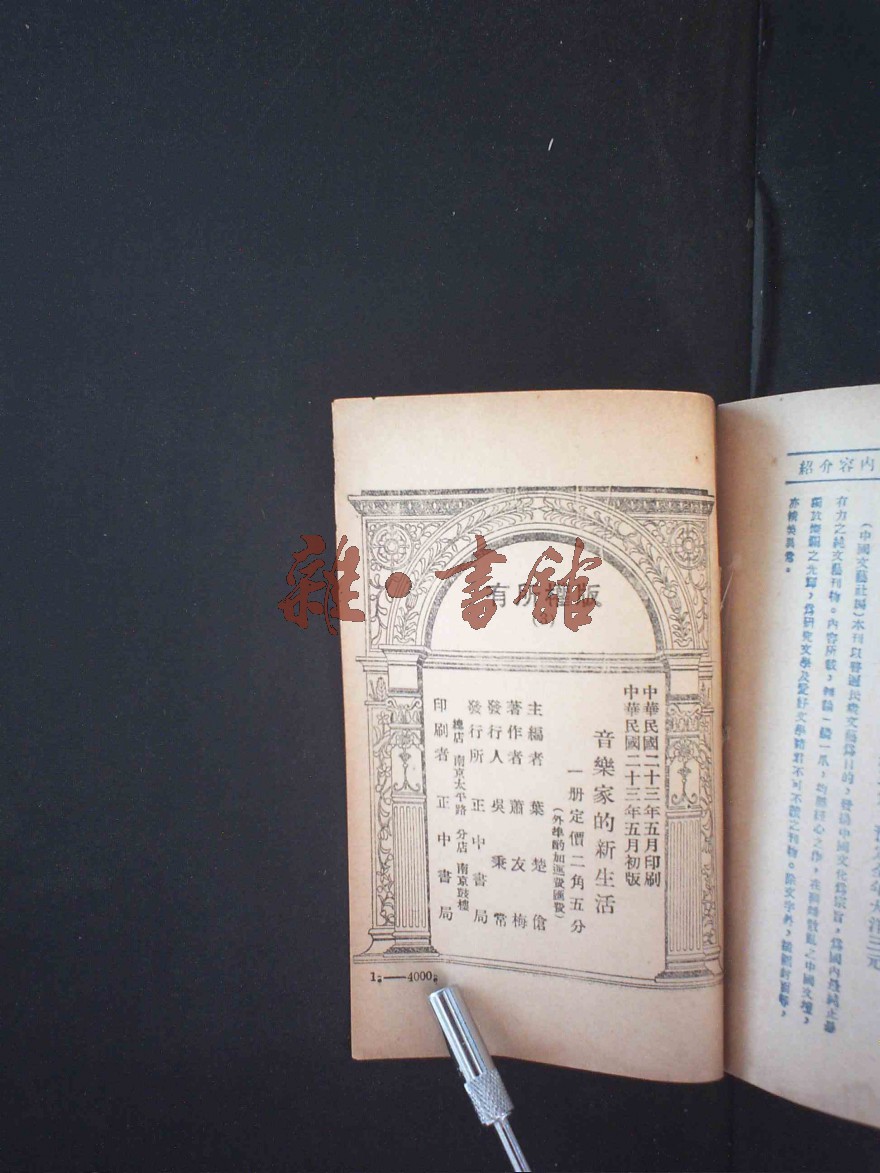 雜·書館
有所權版
中華民國二十三年五月印刷
中華民國二十三年五月初版
音樂家的新生活
一册定價二角五分
(外埠酌加運費匯費)
主編者 葉楚傖
著作者 蕭友梅
發行人 吳秉常
發行所 正中書局
總店 南京太平路 分店 南京鼓樓
印刷者 正中書局
1——4000
紹介容內
(中國文藝社編)本刊以
有力之純文藝刊物。內容所載,
之光輝,爲研究文學及愛好文學 不可不讀之刊物。除文字外,